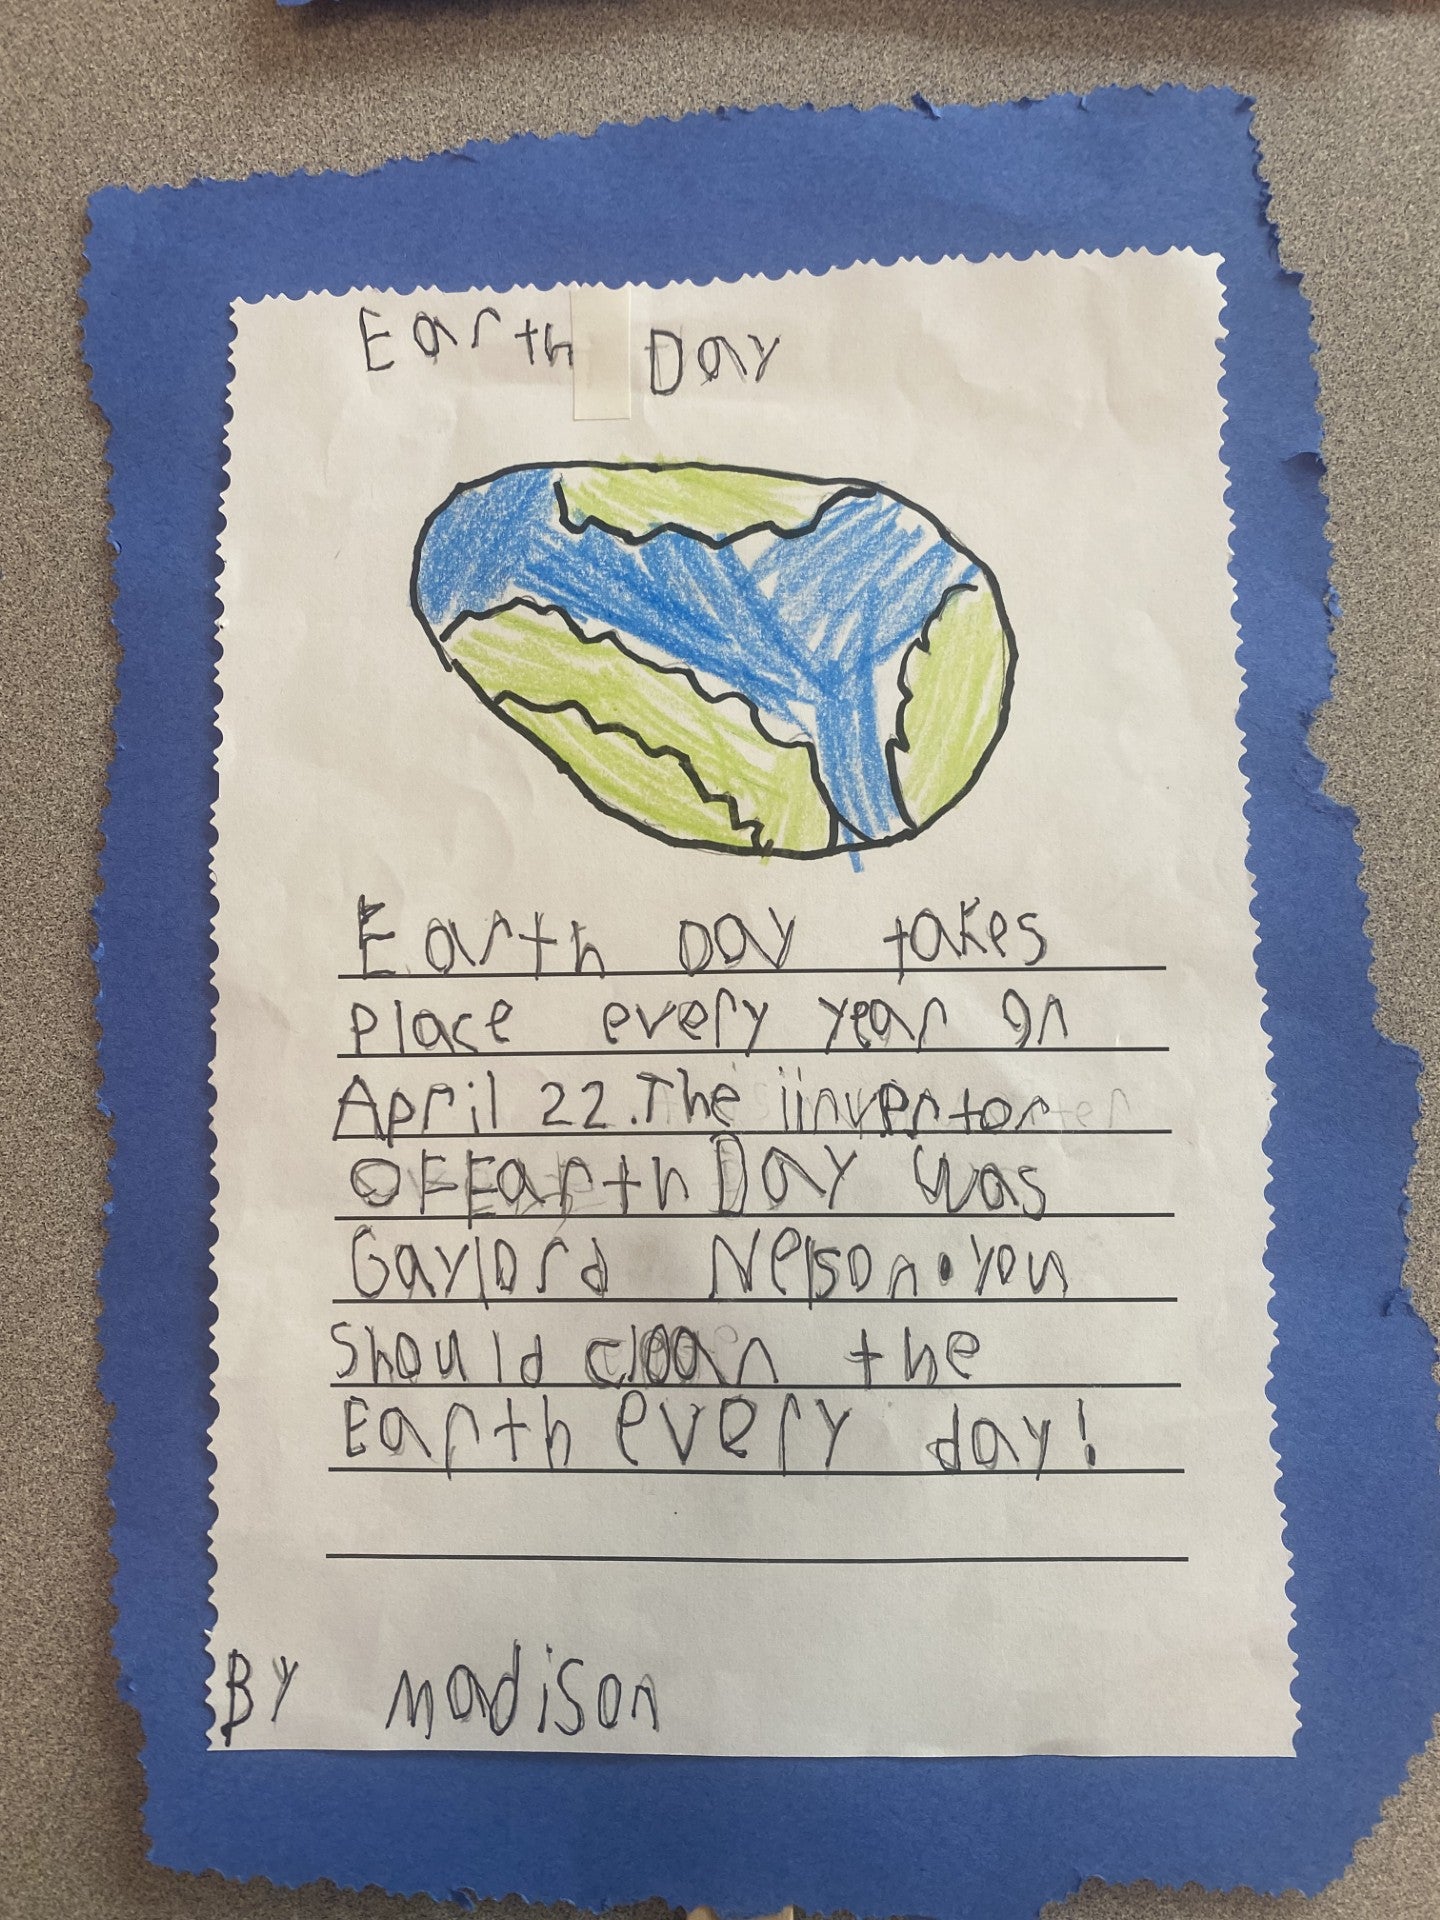 Earth Day
Earth Day takes
place every year on
April 22. The iinventor
OF Earth Day was
Gaylord Nelson. you
Should clean the
Earth every day!
BY madison